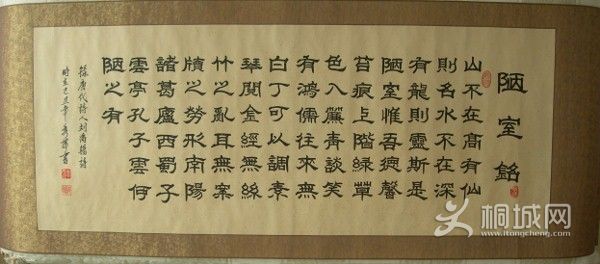 陋室銘
山不在高有仙
則名水不在深
有龍則靈斯是
陋室惟吾德馨
苔痕上階綠草
色入簾青談笑
有鴻儒往來無
白丁可以調素
琴閱金經無絲
竹之亂耳無案
牘之勞形南陽
諸葛廬西蜀子
雲亭孔子雲何
陋之有
唐代詩人刘禹錫詩
己丑年書
桐城网
www.itongcheng.com